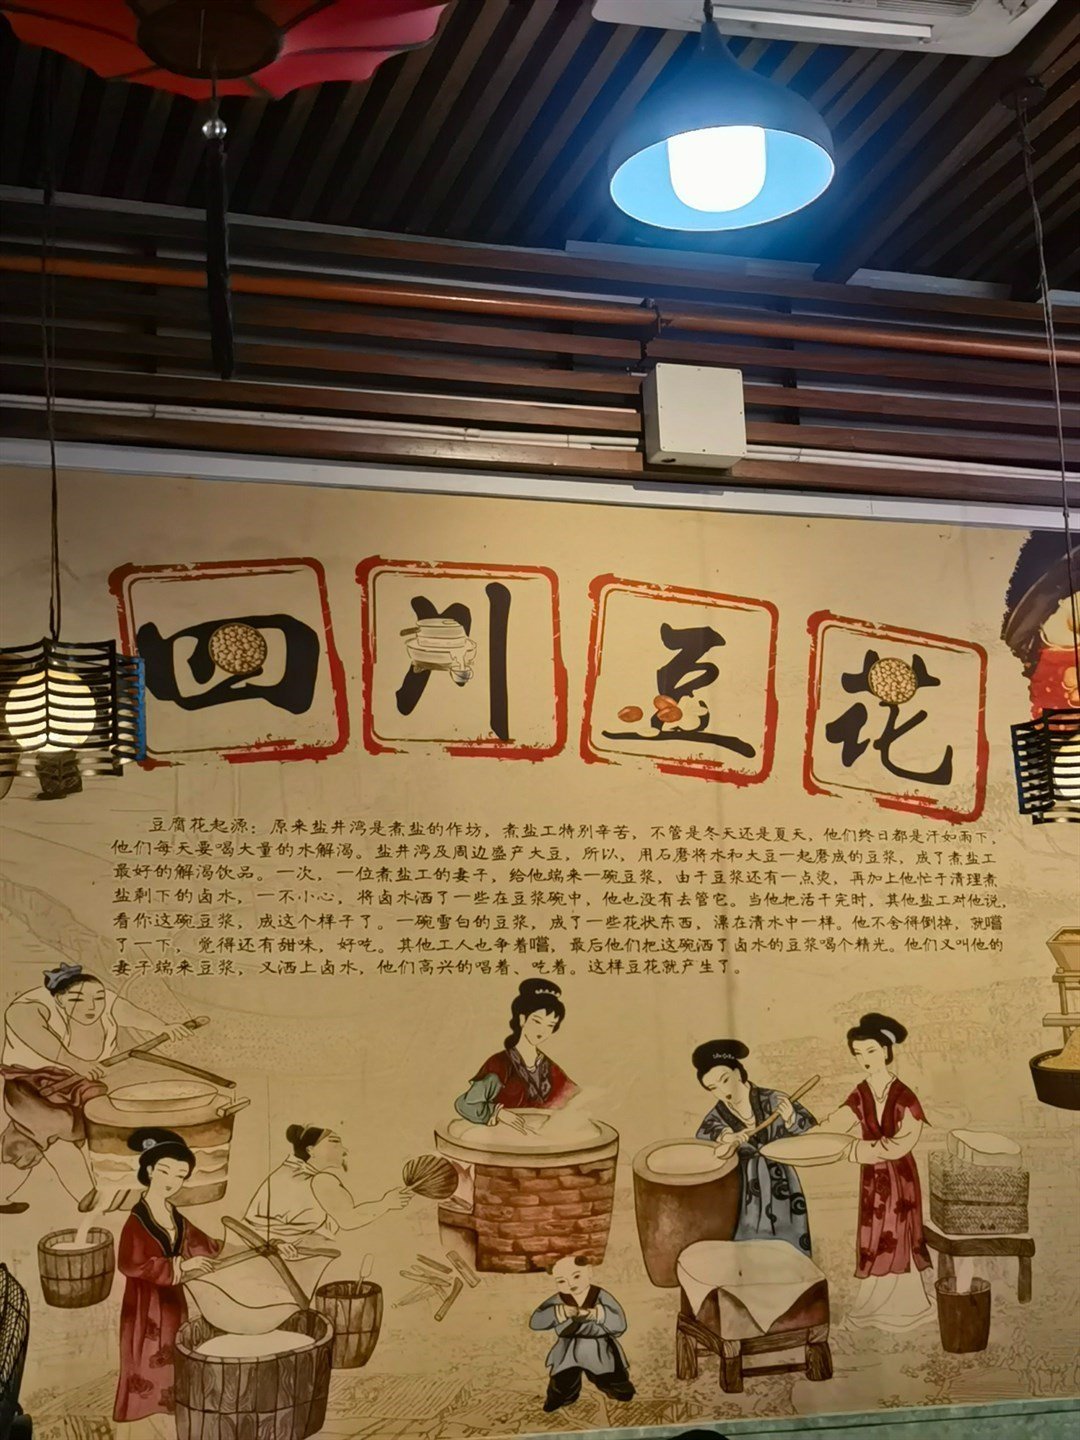 四川豆花
豆腐花起源：原来盐井湾是煮盐的作坊，煮盐工特别辛苦，不管是冬天还是夏天，他们终日都是汗如雨下，
他们每天要喝大量的水解渴。盐井湾及周边盛产大豆，所以，用石磨将水和大豆一起磨成的豆浆，成了煮盐工
最好的解渴饮品。一次，一位煮盐工的妻子，给他端来一碗豆浆，由于豆浆还有一点烫，再加上他忙于清理煮
盐剩下的卤水，一不小心，将卤水洒了一些在豆浆碗中，他也没有去管它。当他把活干完时，其他盐工对他说，
看你这碗豆浆，成这个样子了。一碗雪白的豆浆，成了一些花状东西，漂在清水中一样。他不舍得倒掉，就嚐
了一下，觉得还有甜味，好吃。其他工人也争着嚐，最后他们把这碗洒了卤水的豆浆喝个精光。他们又叫他的
妻子端来豆浆，又洒上卤水，他们高兴的唱着、吃着。这样豆花就产生了。